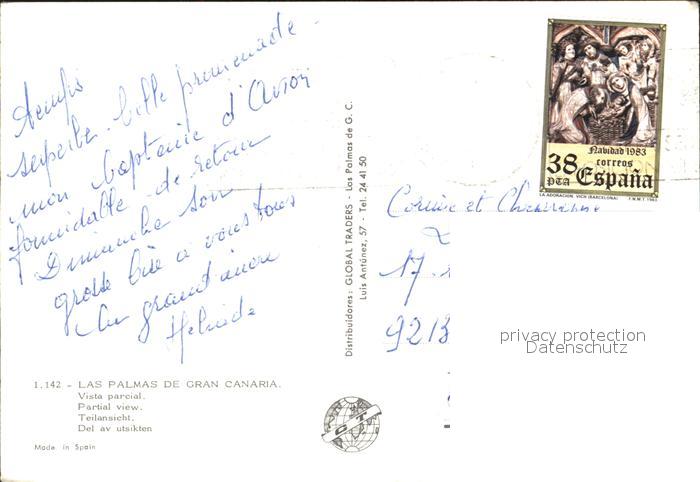 superbe. belle promenade
mon baptême d'avion
formidable - de retour
Dimanche soir
grosse bise à vous tous
1.142 - LAS PALMAS DE GRAN CANARIA.
Vista parcial.
Partial view.
Teilansicht.
Del av utsikten
Made in Spain
Distribuidores: GLOBAL TRADERS - Las Palmas de G. C.
Luis Antúnez, 57 - Tel. 24 41 50
Navidad 1983
38 correos
PTA España
LA ADORACION. VICH (BARCELONA) F.N.M.T. 1983
et
17.
9213
privacy protection
Datenschutz